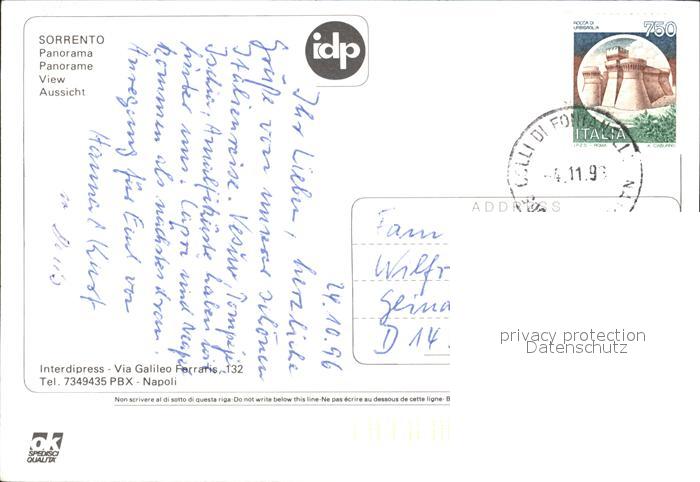 SORRENTO
Panorama
Panorame
View
Aussicht
idp
ROCCA DI
URBISAGLIA
750
ITALIA
I.P.Z.S. - ROMA
COLLI DI FONTANELLE
-4.11.96
ADDRESS
24.10.96
Ihr Lieben, herzliche
Grüße von unserer schönen
Italienreise. Vesuv, Pompeji,
Ischia, Amalfiküste haben wir
hinter uns. Capri und Neapel
kommen als nächstes dran.
Anregung für Euch von
Hannes + Kurt
Fam
Wilfr
Geina
D 14
privacy protection
Datenschutz
Interdipress - Via Galileo Ferraris, 132
Tel. 7349435 PBX - Napoli
Non scrivere al di sotto di questa riga - Do not write below this line - Ne pas écrire au dessous de cette ligne - B
ok
SPEDISCI
QUALITA'